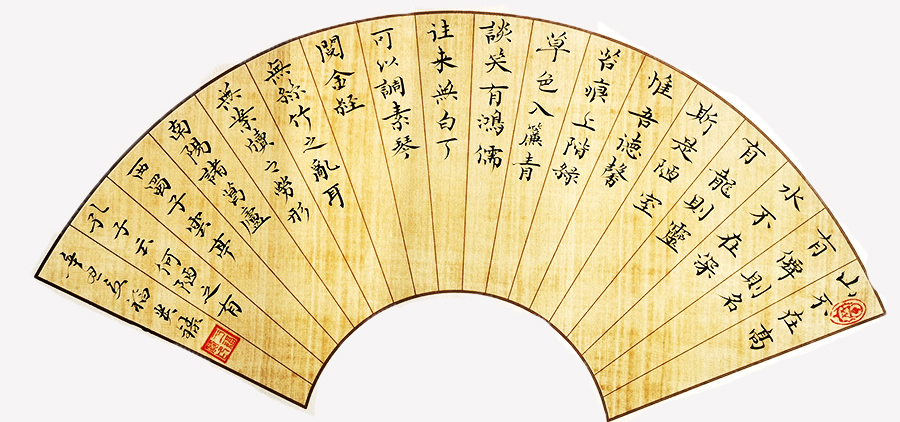 山不在高
有僊則名
水不在深
有龍則靈
斯是陋室
惟吾德馨
苔痕上階綠
草色入簾青
談笑有鴻儒
往来無白丁
可以調素琴
閱金經
無絲竹之亂耳
無案牘之勞形
南陽諸葛廬
西蜀子雲亭
孔子云何陋之有
辛丑夏福